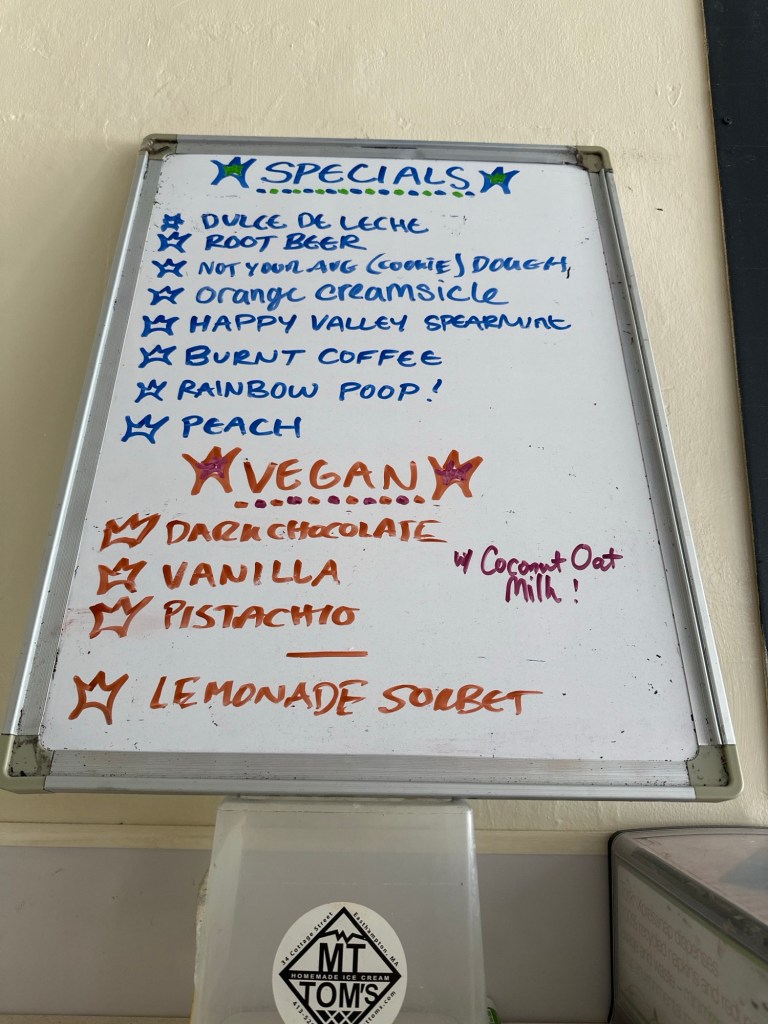 SPECIALS
DULCE DE LECHE
ROOT BEER
NOT YOUR AVG (COOKIE) DOUGH
Orange Creamsicle
HAPPY VALLEY SPEARMINT
BURNT COFFEE
RAINBOW POOP!
PEACH
VEGAN
DARK CHOCOLATE
VANILLA
PISTACHIO
w/ Coconut Oat
Milk!
LEMONADE SORBET
34 Cottage Street Easthampton, MA
MT
HOMEMADE ICE CREAM
TOM'S